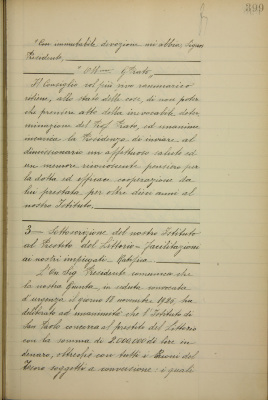 399
"Con immutabile devozione mi abbia, Signor
Presidente,
" Obb.mo G. Prato "
Il Consiglio col più vivo rammarico
ritiene, allo stato delle cose, di non poter
che prendere atto della irrevocabile deter-
minazione del Prof. Prato, ed unanime
incarica la Presidenza di inviare al
dimissionario un affettuoso saluto ed
un memore riconoscente pensiero per
la dotta ed efficace cooperazione da
lui prestata per oltre dieci anni al
nostro Istituto.
3 — Sottoscrizione del nostro Istituto
al Prestito del Littorio - facilitazioni
ai nostri impiegati - Ratifica
L'On. Sig. Presidente comunica che
la nostra Giunta, in seduta convocata
d'urgenza il giorno 18 novembre 1926, ha
deliberato ad unanimità che l'Istituto di
San Paolo concorra al prestito del Littorio
con la somma di 2.000.000 di lire in
denaro, oltreché con tutti i Buoni del
Tesoro soggetti a conversione i quali